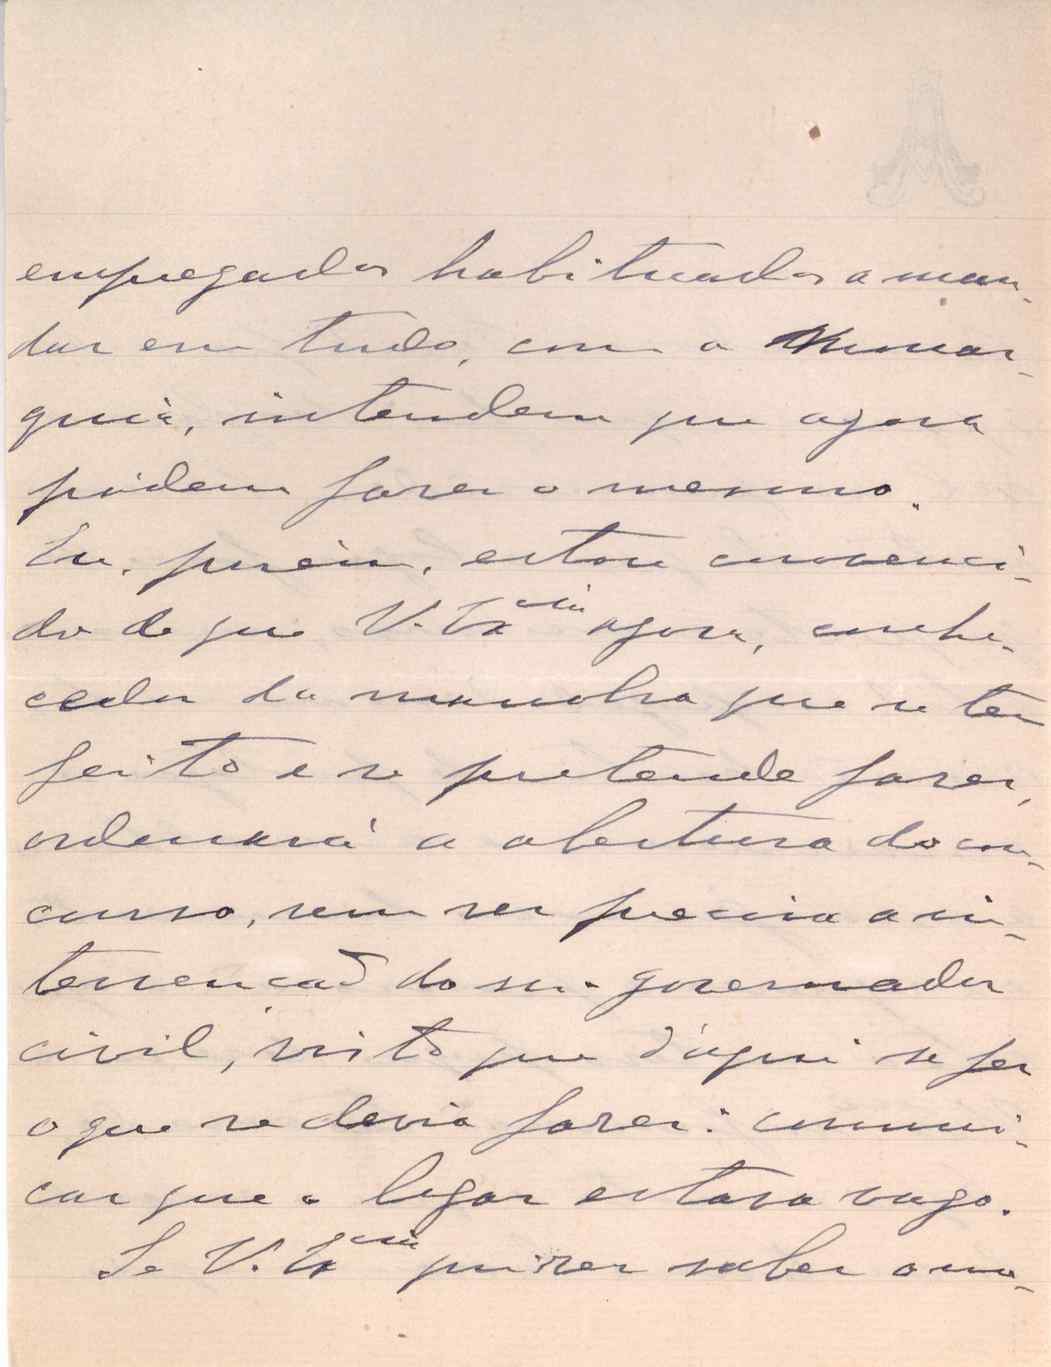 empregados habituados a man-
dar em tudo, com a Monar-
quia, intendem que agora
pódem fazer o mesmo.
Eu, porèm, estou convenci-
do de que V. Ex.cia agora, conhe-
cedor da manobra que se tem
feito e se pretende fazer,
ordenará a abertura do con-
curso, sem ser precisa a in-
tervenção do sr. governador
civil, visto que d'aqui se fez
o que se devia fazer: communi-
car que o logar estava vago.
Se V. Ex.cia quizer saber o mo-